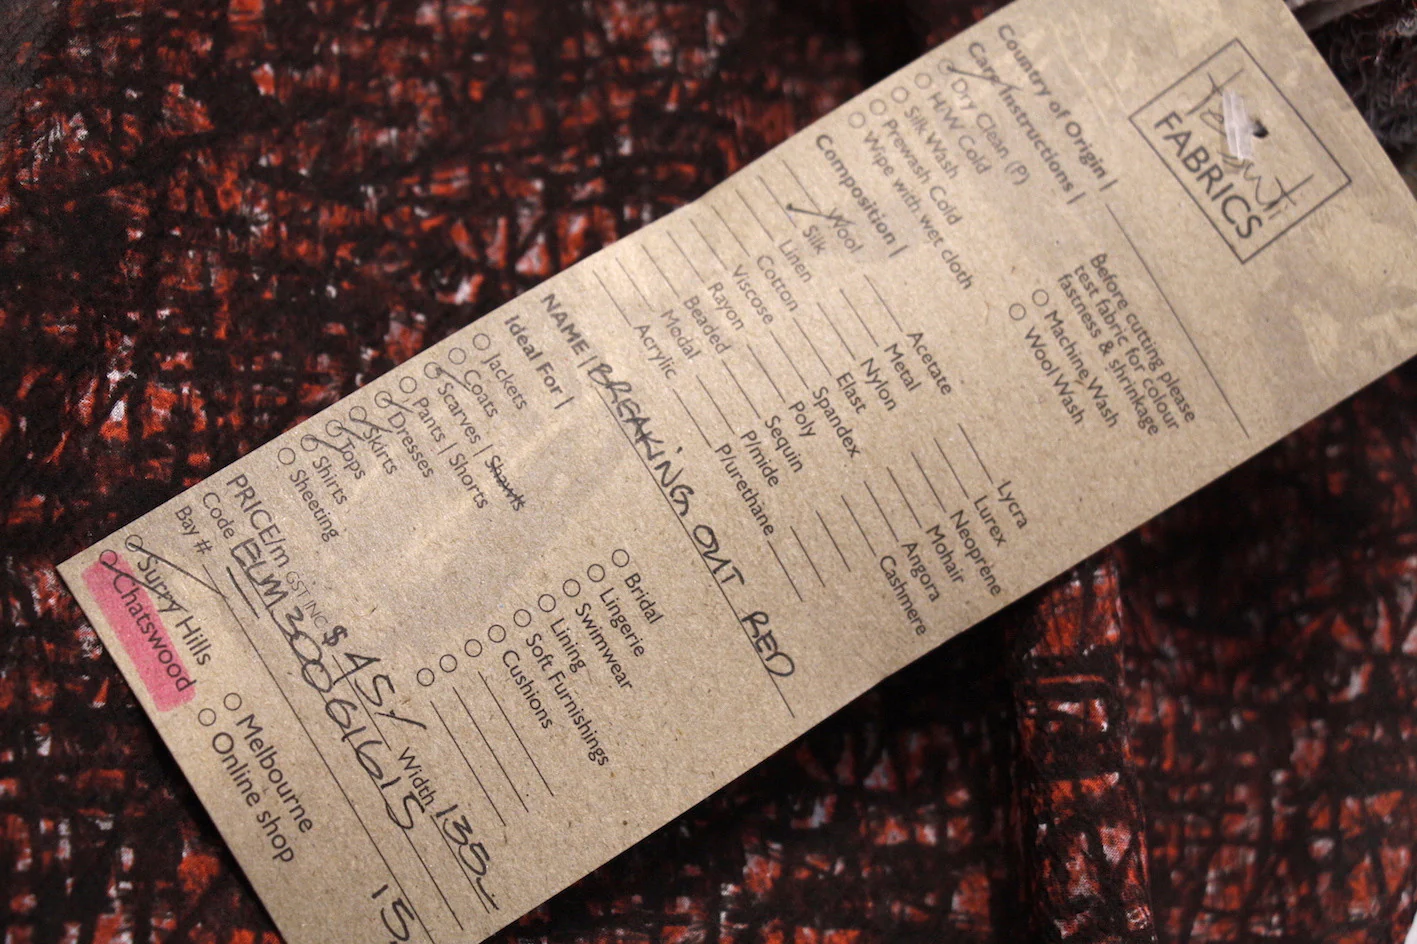 Tessuti
FABRICS
Country of Origin |
Care Instructions |
Dry Clean (P)
H/W Cold
Silk Wash
Prewash Cold
Wipe with wet cloth
Before cutting please
test fabric for colour
fastness & shrinkage
Machine Wash
Wool Wash
Composition |
Wool
Silk
Linen
Cotton
Viscose
Rayon
Beaded
Modal
Acrylic
Acetate
Metal
Nylon
Elast
Spandex
Poly
Sequin
P/mide
P/urethane
Lycra
Lurex
Neoprene
Mohair
Angora
Cashmere
NAME | BREAKING OUT RED
Ideal For |
Jackets
Coats
Scarves | Shawls
Pants | Shorts
Dresses
Skirts
Tops
Shirts
Sheeting
Bridal
Lingerie
Swimwear
Lining
Soft Furnishings
Cushions
PRICE/m GST INC $45/ Width 135
Code ELM30061615
Bay #
Surry Hills
Chatswood
Melbourne
Online shop